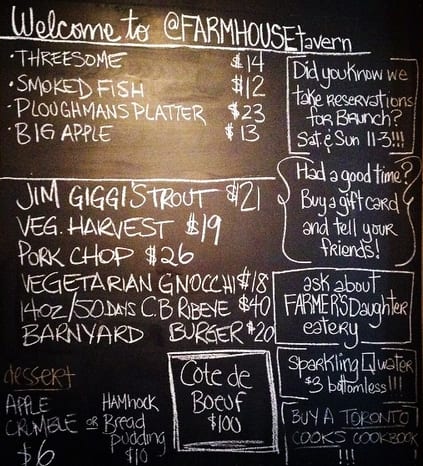 Welcome to @FARMHOUSEtavern
·THREESOME $14
·SMOKED FISH $12
·PLOUGHMANS PLATTER $23
·BIG APPLE $13
Did you know we
take reservations
for Brunch?
Sat & Sun 11-3!!!
Had a good time?
Buy a gift card
and tell your
friends!
JIM GIGGI'S TROUT $21
VEG. HARVEST $19
PORK CHOP $26
VEGETARIAN GNOCCHI $18
14oz/50 DAYS C.B RIBEYE $40
BARNYARD BURGER $20
ask about
FARMER'S Daughter
eatery
Sparkling Q water
$3 bottomless!!!
BUY A TORONTO
COOKS COOKBOOK
!!!
Côte de
Boeuf
$100
dessert
APPLE
CRUMBLE
$6
OR
HAMHOCK
Bread
pudding
$10